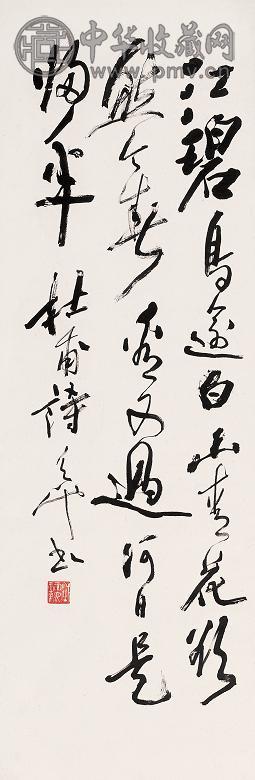 中华收藏网
www.pmv.cn
江碧鸟逾白山青花欲
然今春看又過何日是
归年 杜甫詩
书